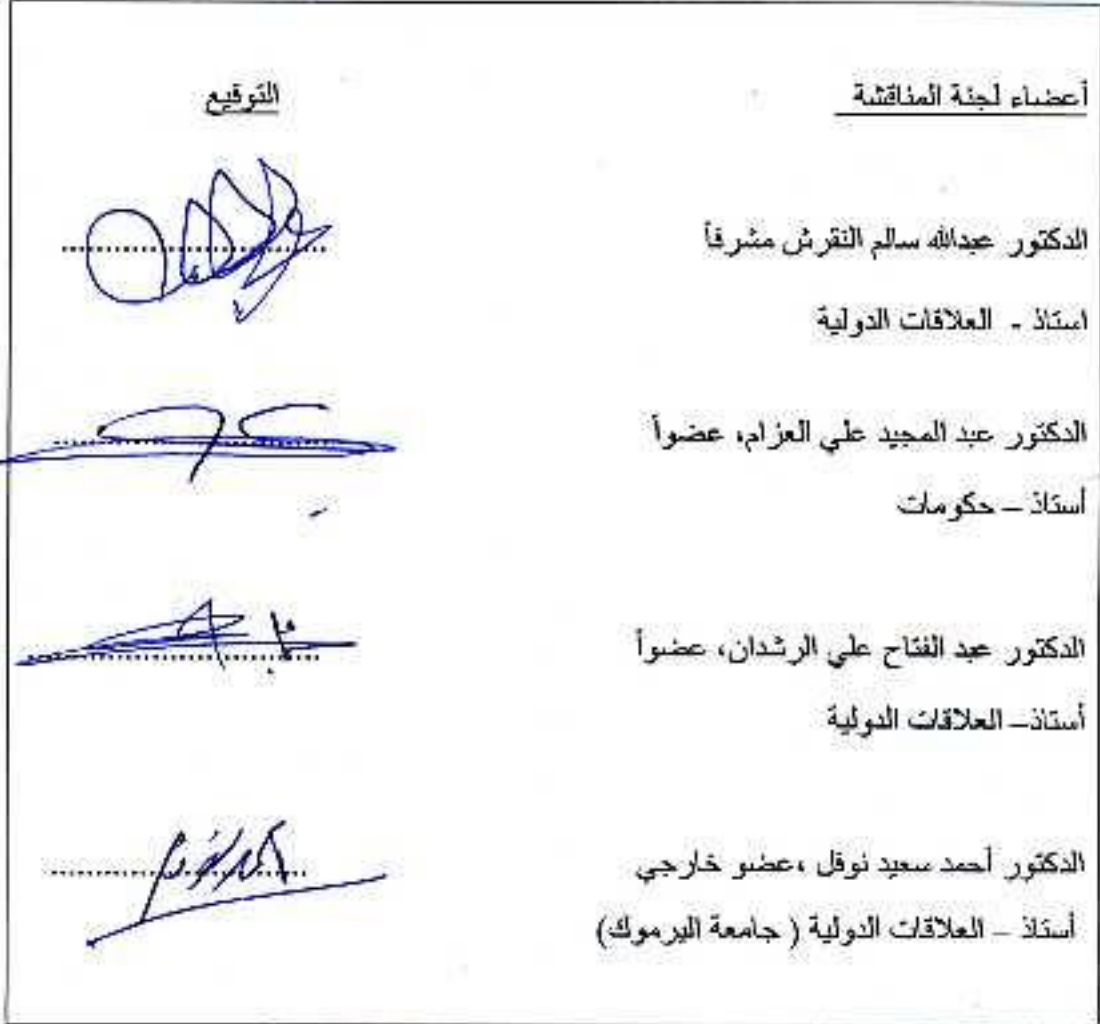 أعضاء لجنة المناقشة التوقيع
الدكتور عبدالله سالم النقرش مشرفاً
استاذ - العلاقات الدولية
الدكتور عبد المجيد علي العزام، عضواً
أستاذ – حكومات
الدكتور عبد الفتاح علي الرشدان، عضواً
أستاذ– العلاقات الدولية
الدكتور أحمد سعيد نوفل ،عضو خارجي
أستاذ – العلاقات الدولية ( جامعة اليرموك)